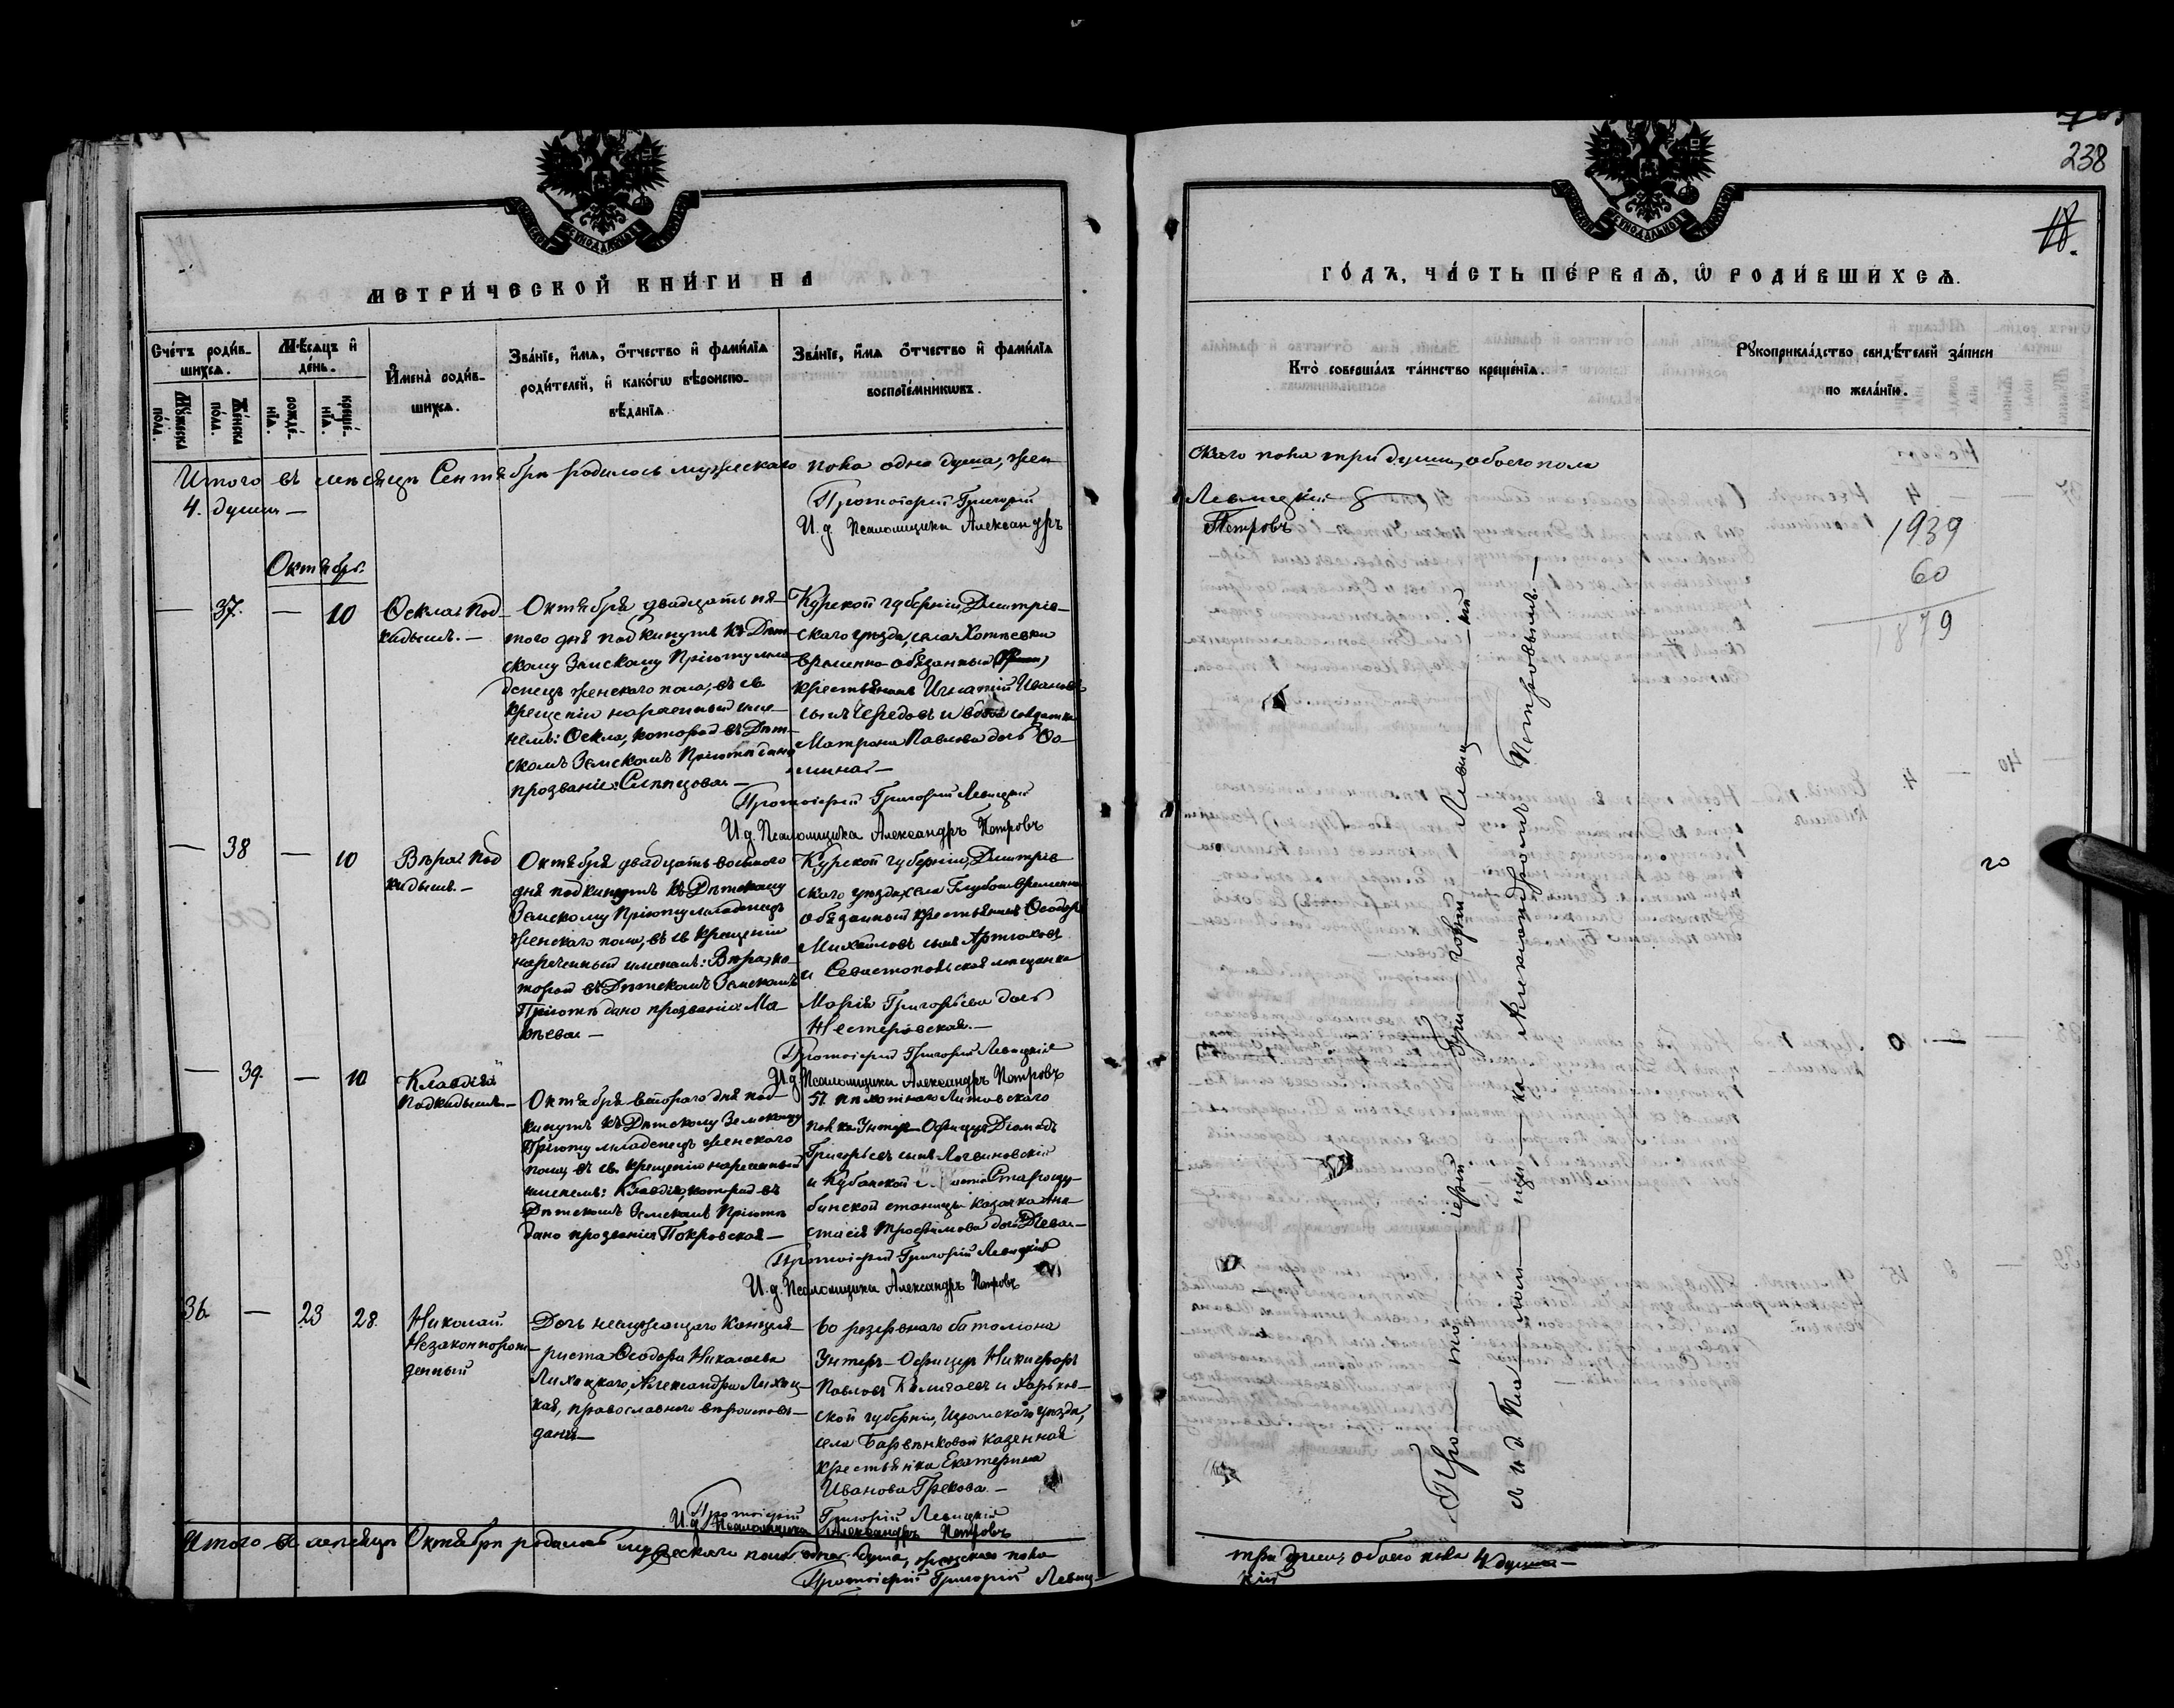 238
18.
МЕТРИ́ЧЕСКОЙ КНИ́ГИ НА
ГО́ДЪ, ЧА́СТЬ ПЕ́РВАѦ, Ѡ҆ РОДИ́ВШИХСѦ.
Сче́тъ роди́в-
шихсѧ.
Мꙋ́жеска
по́ла.
Же́нска
по́ла.
Мѣ́сѧцъ и҆
де́нь.
рожде́-
нїѧ.
креще́-
нїѧ.
И҆мена̀ роди́в-
шихсѧ.
Зва́нїе, и҆́мѧ, ѻ҆́тчество и҆ фами́лїѧ
роди́телей, и҆ како́гѡ вѣроиспо-
вѣ́данїѧ.
Зва́нїе, и҆́мѧ ѻ҆́тчество и҆ фами́лїѧ
воспрїе́мникѡвъ.
Кто̀ соверша́лъ та́инство креще́нїѧ.
Рꙋкоприкла́дство свидѣ́телей за́писи
по жела́нїю.
Итого въ мѣсяцѣ Сентябрѣ родилось мужескаго пола одна душа, жен
скаго пола три души, обоего пола
4. души —
Протоіерей Григорій
Левицкій
И. д. Псаломщика Александръ
Петровъ
1939
60
1879
Октябрь.
— 37. — 10
Оекла Под-
кидышъ. —
Октября двадцать пя-
того дня подкинутъ къ Дѣт-
скому Земскому Пріюту мла-
денецъ женскаго пола, въ св.
крещеніи нареченный име-
немъ: Оекла, которой въ Дѣт-
скомъ Земскомъ Пріютѣ дано
прозваніе: Слѣпцова —
Курской губерніи, Дмитріев-
скаго уѣзда, села Хотѣевки
временно-обязанный
крестьянинъ Игнатій Ивановъ
сынъ Чередовъ и вдова солдатка
Матрона Павлова дочь Оо-
мина —
Протоіерей Григорій Левицкій
И. д. Псаломщика Александръ Петровъ
— 38 — 10
Вѣра Под
кидышъ. —
Октября двадцать восьмаго
дня подкинутъ къ Дѣтскому
Земскому Пріюту младенецъ
женскаго пола, въ св. крещеніи
нареченный именемъ: Вѣра, ко-
торой въ Дѣтскомъ Земскомъ
Пріютѣ дано прозваніе: Ма-
Курской губерніи, Дмитріев
скаго уѣзда, села Глубокаго временно
обязанный крестьянинъ Оеодоръ
Михаиловъ сынъ Артюховъ
и Севастопольская мѣщанка
Марія Григорьева дочь
Нестеровская. —
Протоіерей Григорій Левицкій
И. д. Псаломщика Александръ Петровъ
— 39. — 10
Клавдія
Подкидышъ —
Октября втораго дня под-
кинутъ къ Дѣтскому Земскому
Пріюту младенецъ женскаго
пола, въ св. крещеніи нареченный
именемъ: Клавдія, которой въ
Дѣтскомъ Земскомъ Пріютѣ
дано прозваніе Покровская —
51 пѣхотнаго Литовскаго
полка Унтеръ-Офицеръ Діомидъ
Григорьевъ сынъ Логвиновскій
и Кубанской
бинской станицы казачка Ана-
стасія Трофимова дочь
Протоіерей Григорій Левицкій
И. д. Псаломщика Александръ Петровъ
36. — 23 28.
Николай
Незаконнорож-
денный
Дочь неслужащаго Канцеля-
риста Оеодора Николаева
Лихацкаго, Александра Лихац-
кая, православнаго вѣроисповѣ-
данія —
60 резервнаго баталіона
Унтеръ-Офицеръ Никифоръ
Павловъ и Харьков-
ской губерніи, Изюмскаго уѣзда,
села Барвѣнковой казенная
крестьянка Екатерина
Иванова Грекова. —
Протоіерей Григорій Левицкій
И. д. Псаломщика Александръ Петровъ
Итого въ мѣсяцѣ Октябрѣ родилось мужескаго пола одна душа, женскаго пола
три души, обоего пола 4 души —
Протоіерей Григорій Левиц-
кій
Про — то — іерей Гри — горій Левиц — кій
и. д. Псал — ом — щи — ка Александромъ Петровымъ. —